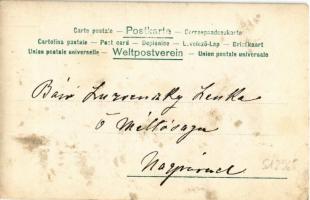 Carte postale — Postkarte — Correspondenzkarte
Cartolina postale — Post card — Dopisnice — Levelező-Lap — Briefkaart
Union postale universelle — Weltpostverein — Union postale universale
Báró Luzsenszky Lenke
Ő Méltósága
Nagyvárad